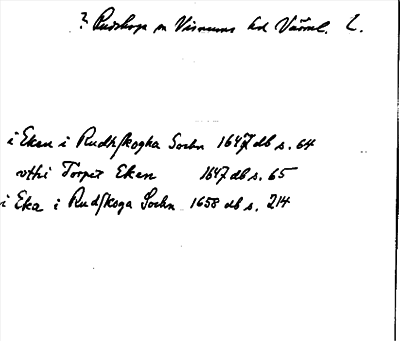 ? Rudskoga sn Visnums hd Värml. L.
i Ekan i Rudhskogha Sochn 1647 db s. 64
vthi Torpet Ekan 1647 db s. 65
i Eka i Rudskoga Sochn 1658 db s. 214